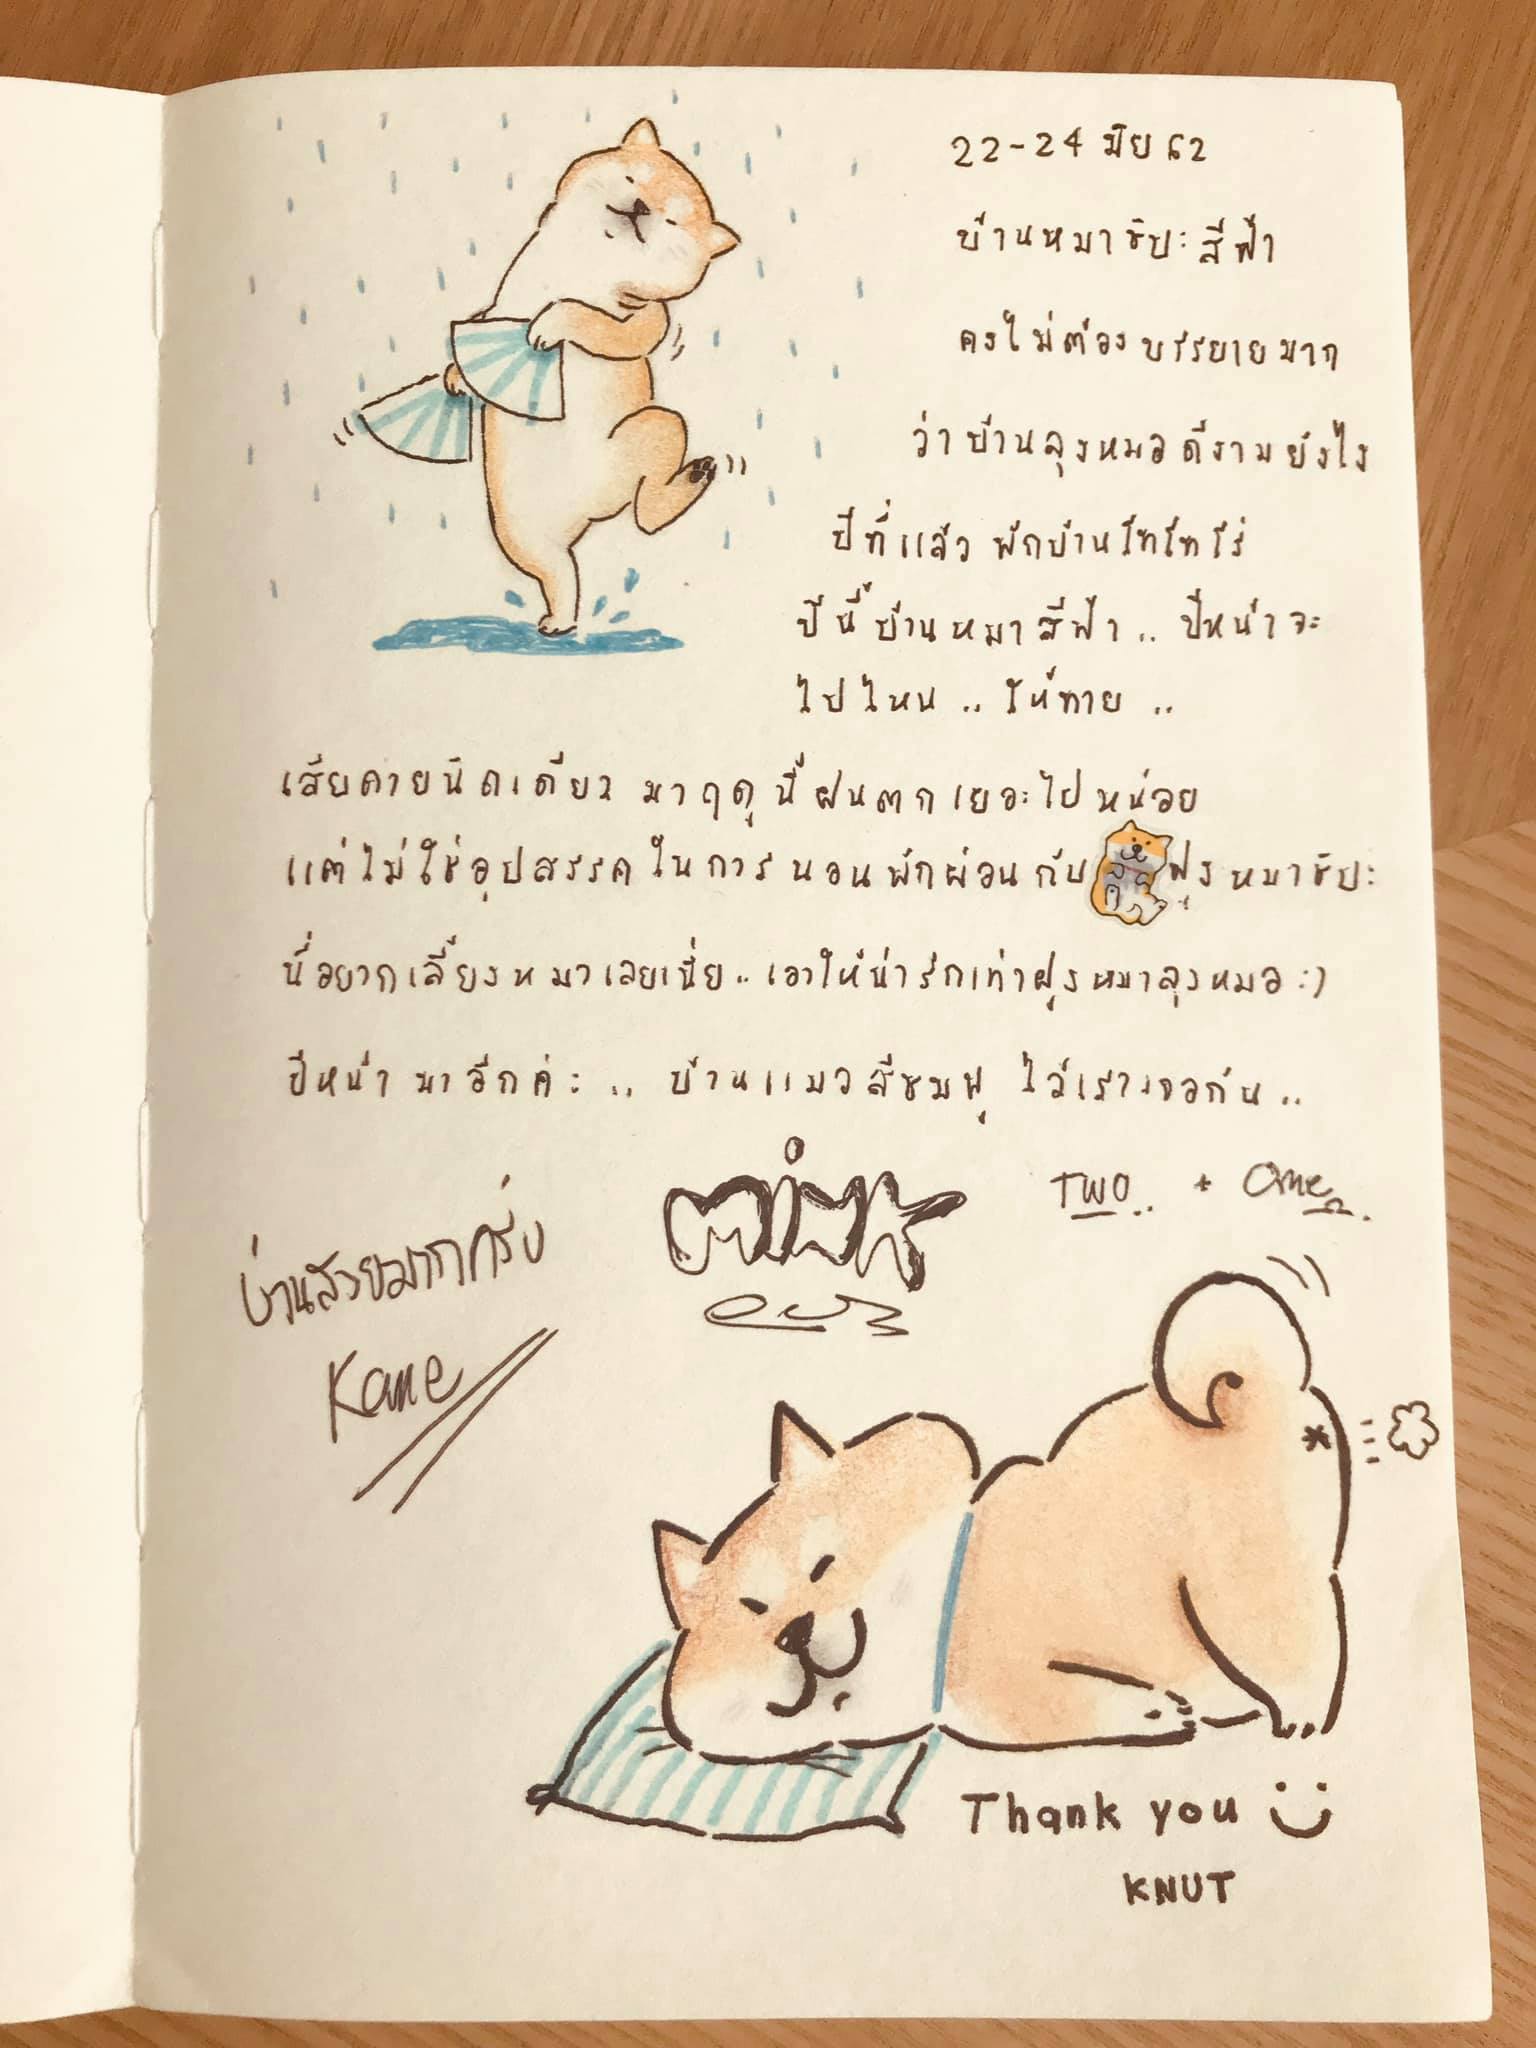 22-24 มิย 62
บ้านหมาชิบะสีฟ้า
คงไม่ต้องบรรยายมาก
ว่าบ้านลุงหมอดีงามยังไง
ปีที่แล้ว พักบ้านโทโทโร่
ปีนี้บ้านหมาสีฟ้า.. ปีหน้าจะ
ไปไหน .. ให้ทาย ..
เสียดายนิดเดียว มาฤดูนี้ฝนตกเยอะไปหน่อย
แต่ไม่ใช่อุปสรรคในการนอนพักผ่อนกับฝูงหมาชิบะ
นี่อยากเลี้ยงหมาเลยเนี่ย.. เอาให้น่ารักเท่าฝูงหมาลุงหมอ :)
ปีหน้ามาอีกค่ะ .. บ้านแมวสีชมพู ไว้เราเจอกัน ..
บ้านสวยมากครับ
Kane
mink
TWO.. + One.
Thank you
KNUT